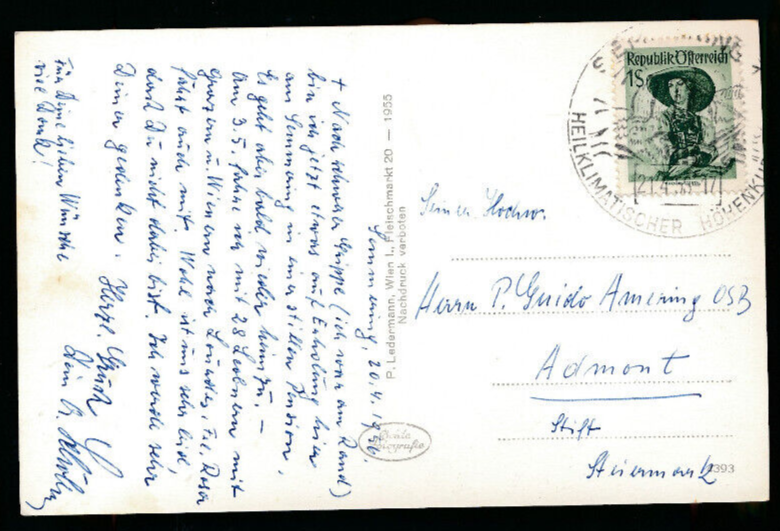 Semmering, 20.4.1956.
+ Nach schwerer Grippe (ich war am Rand)
bin ich jetzt etwas auf Erholung hier
am Semmering in einer stillen Pension.
Es geht aber bald wieder heimzu. –
Am 3.5. fahre ich mit 28 Leobnern mit
Grazern u. Wienern nach Lourdes. Frl. Rosa
fährt auch mit. Wohl ist uns sehr leid,
dass Du nicht dabei bist. Ich werde sehr
Deiner gedenken. Herzl. Gruß
Dein
Für Deine lieben Wünsche
viel Dank!
P. Ledermann, Wien I., Fleischmarkt 20 — 1955
Nachdruck verboten
Echte
Republik Österreich
1S
SEMMERING
21.4.56-17
HEILKLIMATISCHER HÖHENKU
Seiner Hochw.
Herrn P. Guido Amering OSB
Admont
Stift
Steiermark
393